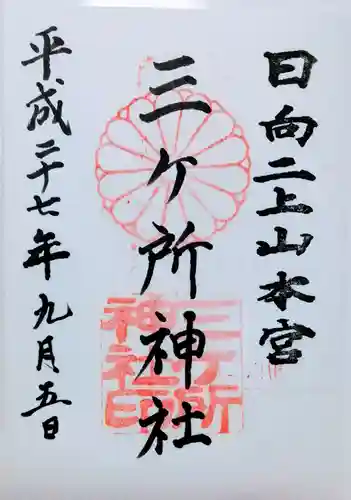 日向二上山本宮
三ケ所神社
平成二十七年九月五日
三ケ所
神社印